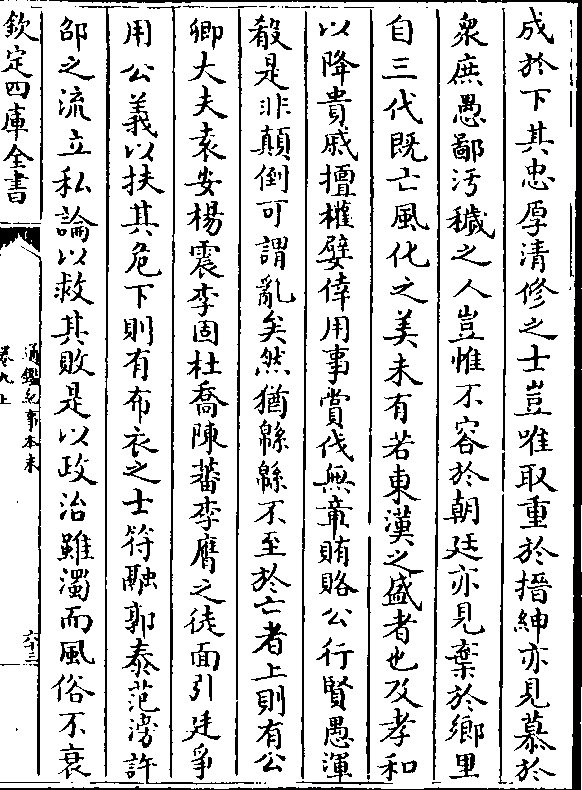 成於下其忠厚清修之士豈唯取重於搢紳亦見慕於
衆庶愚鄙汚穢之人豈惟不容於朝廷亦見棄於鄉里
自三代既亡風化之美未有若東漢之盛者也及孝和
以降貴戚擅權嬖倖用事賞伐無章賄賂公行賢愚渾
殽是非顛倒可謂亂矣然猶緜緜不至於亡者上則有公
卿大夫袁安楊震李固杜喬陳蕃李膺之徒面引廷爭
用公義以扶其危下則有布衣之士符融郭泰范滂許
邵之流立私論以救其敗是以政治雖濁而風俗不衰
欽定四庫全書
通鑑紀事本末
卷九上
六十三